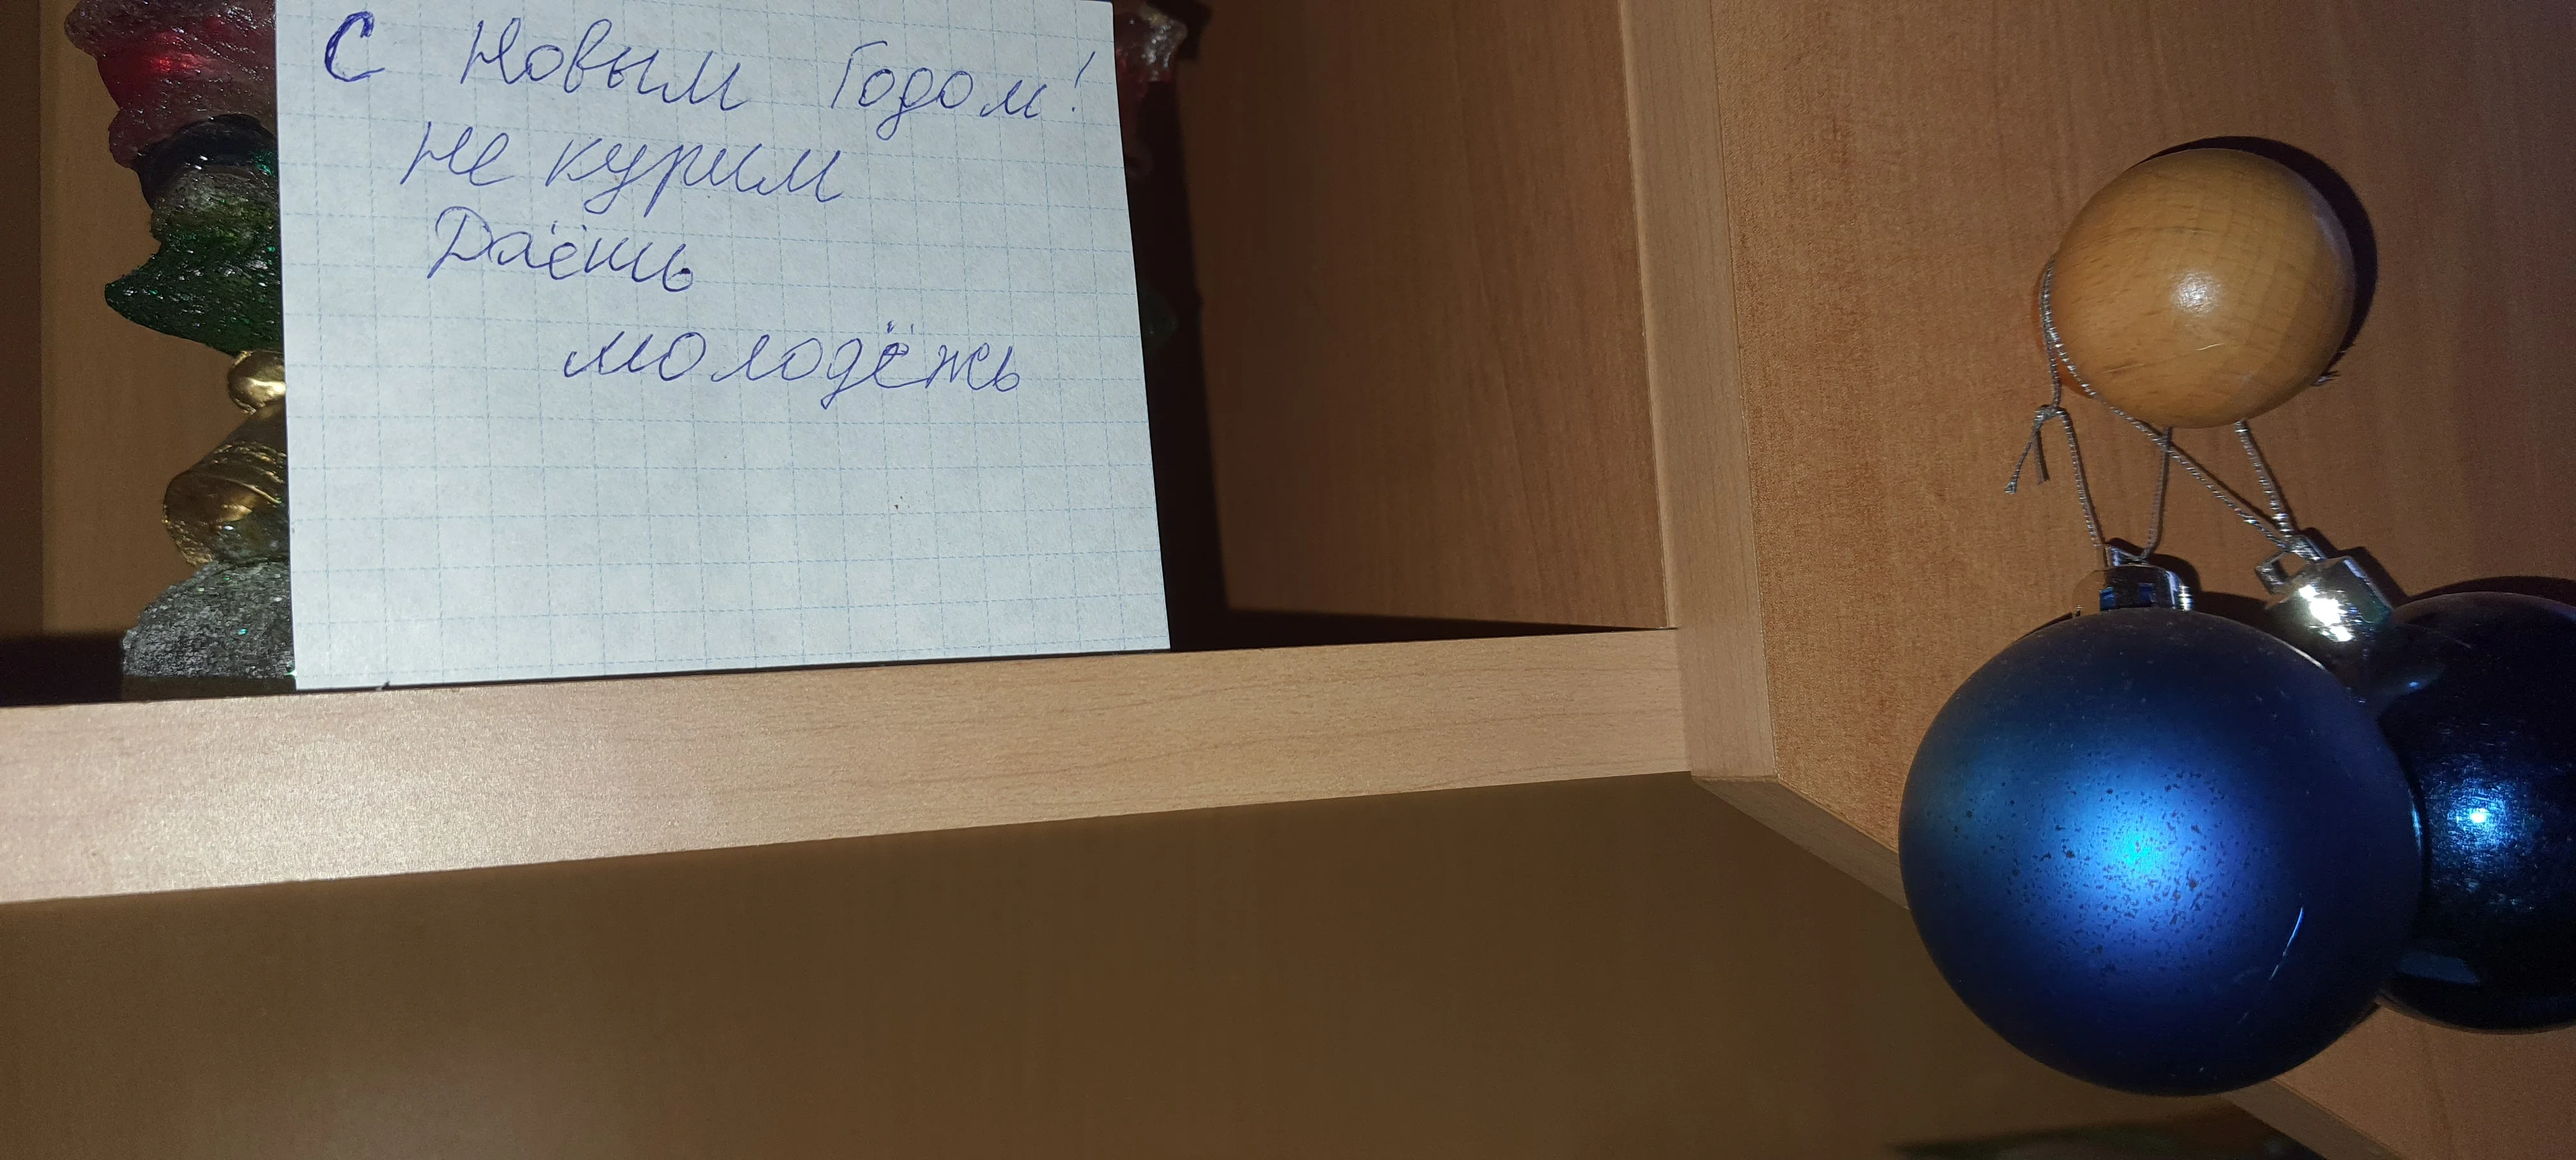 С Новым Годом!
Не курим
Даёшь
молодёжь